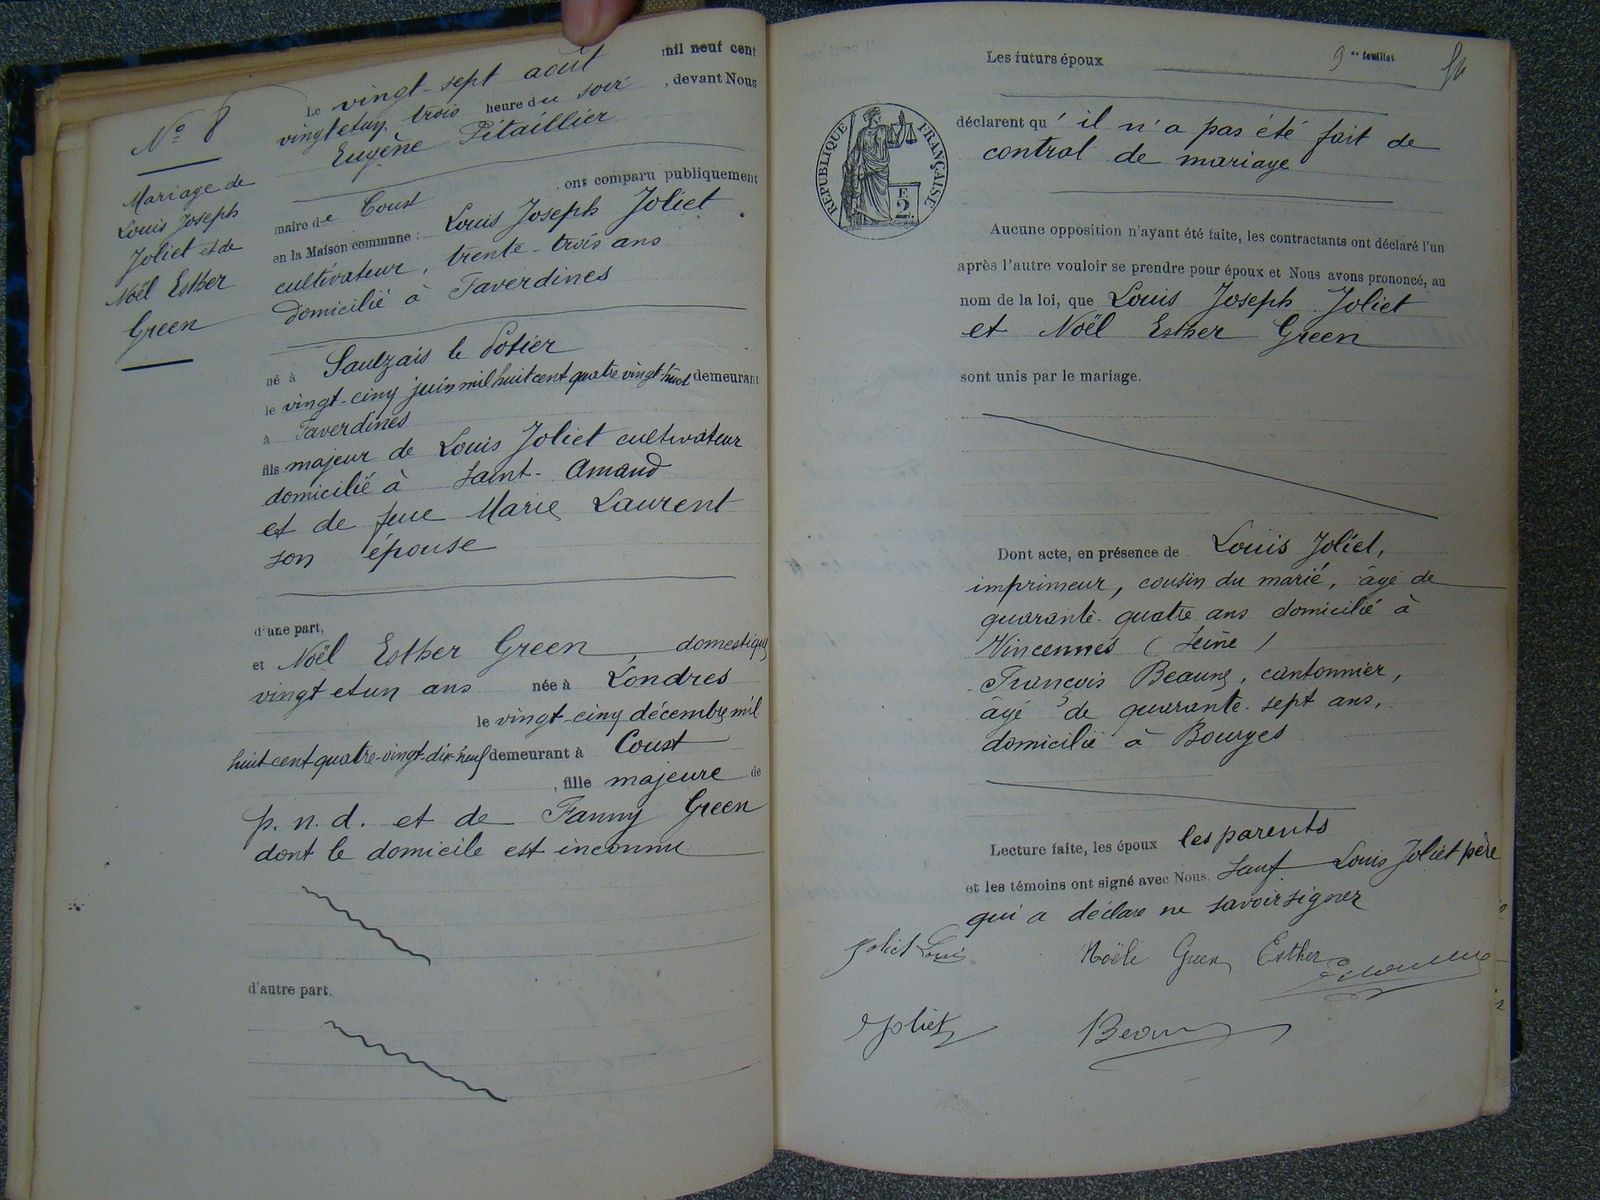 N° 8
Mariage de
Louis Joseph
Joliet et de
Noël Esther
Green
Le vingt-sept août mil neuf cent
vingt et un, trois heure du soir, devant Nous
Eugène Pétaillier
maire de Coust ont comparu publiquement
en la Maison commune : Louis Joseph Joliet
cultivateur, trente-trois ans
domicilié à Faverdines
né à Saulzais le Potier
le vingt-cinq juin mil huit cent quatre vingt huit demeurant
à Faverdines
fils majeur de Louis Joliet cultivateur
domicilié à Saint-Amand
et de feue Marie Laurent
son épouse
d'une part,
et Noël Esther Green, domestique
vingt et un ans née à Londres
le vingt-cinq décembre mil
huit cent quatre-vingt-dix-neuf demeurant à Coust
, fille majeure de
p. n. d. et de Fanny Green
dont le domicile est inconnu
d'autre part.
9 me feuillet
Les futurs époux
RÉPUBLIQUE FRANÇAISE
2
déclarent qu'il n'a pas été fait de
contrat de mariage
Aucune opposition n'ayant été faite, les contractants ont déclaré l'un
après l'autre vouloir se prendre pour époux et Nous avons prononcé, au
nom de la loi, que Louis Joseph Joliet
et Noël Esther Green
sont unis par le mariage.
Dont acte, en présence de Louis Joliet,
imprimeur, cousin du marié, âgé de
quarante-quatre ans domicilié à
Vincennes (Seine)
François Beaune, cantonnier,
âgé de quarante-sept ans,
domicilié à Bourges
Lecture faite, les époux les parents
et les témoins ont signé avec Nous. Sauf Louis Joliet père
qui a déclaré ne savoir signer
Joliet Louis Noële Green Esther
Joliet Beaune